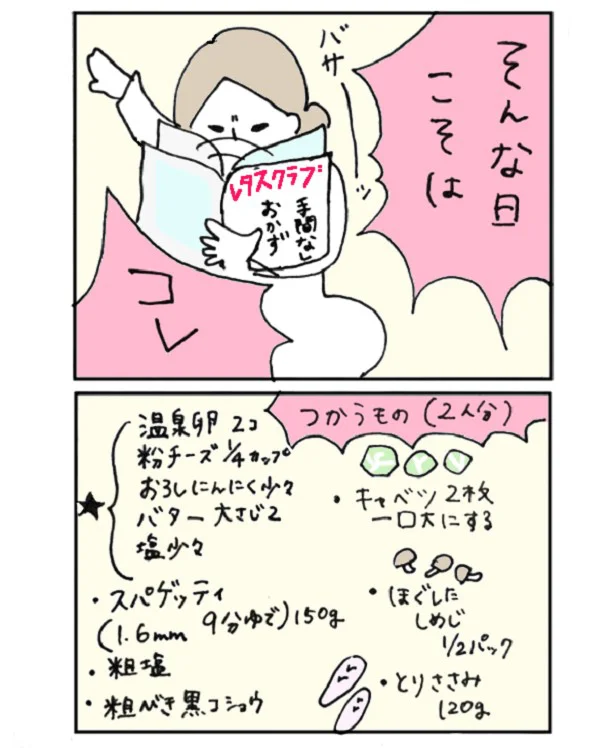 そんな日
こそは
バサーッ
レタスクラブ
手間なし
おかず
コレ
つかうもの(2人分)
★
温泉卵 2コ
粉チーズ 1/4カップ
おろしにんにく少々
バター 大さじ2
塩少々
・スパゲッティ
(1.6mm 9分ゆで)150g
・粗塩
・粗びき黒コショウ
・キャベツ 2枚
一口大にする
・ほぐした
しめじ
1/2パック
・とりささみ
120g